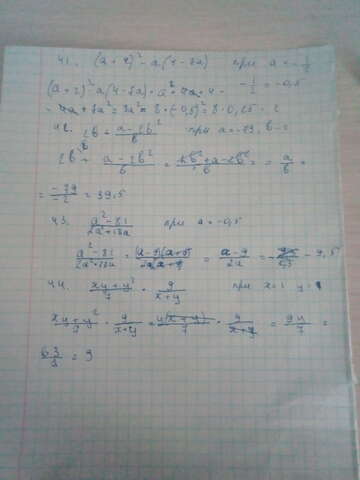 41. (a+2)² - a(4-7a) при a = -1/2
(a+2)² - a(4-7a) = a² + 4a + 4 - -1/2 = -0,5
- 4a + 7a² = 8a² = 8·(-0,5)² = 8·0,25 = 2
42. 2b + (a-2b²)/b при a = -79, b = -2
2b + (a-2b²)/b = (2b²+a-2b²)/b = a/b =
= -79/-2 = 39,5
43. (a²-81)/(2a²+18a) при a = -0,5
(a²-81)/(2a²+18a) = (a-9)(a+9)/2a(a+9) = (a-9)/2a = 9,5
44. (xy+y²)/7 · 9/(x+y) при x=1 y=
(xy+y²)/7 · 9/(x+y) = y(x+y)/7 · 9/(x+y) = 9y/7 =
63/ = 9